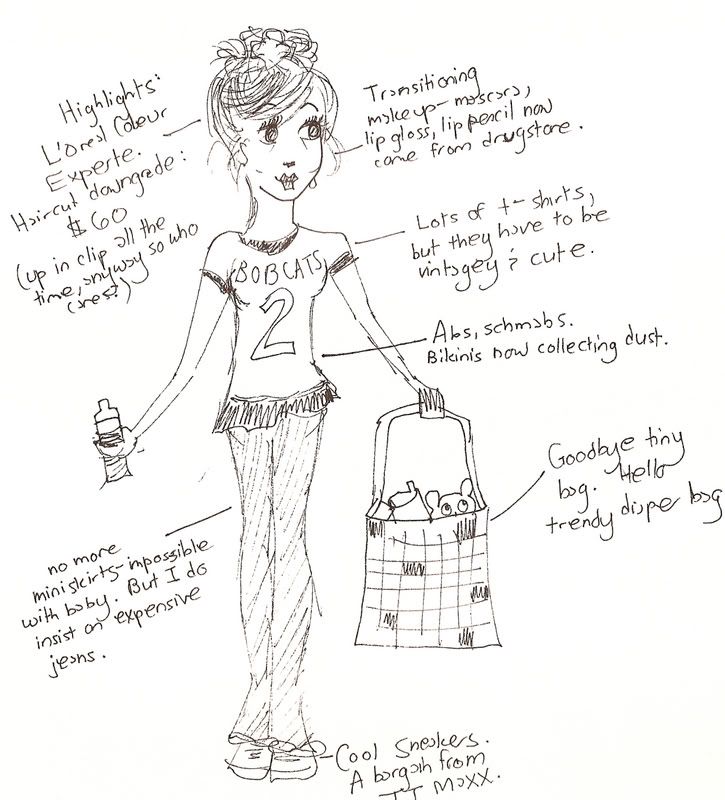 Highlights:
L'Oreal Coleur
Experte.
Haircut downgrade:
$60
(up in clip all the
time, anyway so who
cares!)
Transitioning
makeup- mascara,
lip gloss, lip pencil now
come from drugstore.
Lots of t-shirts,
but they have to be
vintagey & cute.
BOBCATS
2
Abs, schmabs.
Bikinis now collecting dust.
Goodbye tiny
bag. Hello
trendy diaper bag
no more
miniskirts-impossible
with baby. But I do
insist on expensive
jeans.
Cool Sneakers.
A bargain from
TJ Maxx.